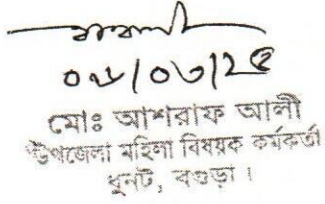 ০৬/০৩/২৫
মোঃ আশরাফ আলী
উপজেলা মহিলা বিষয়ক কর্মকর্তা
ধুনট, বগুড়া।